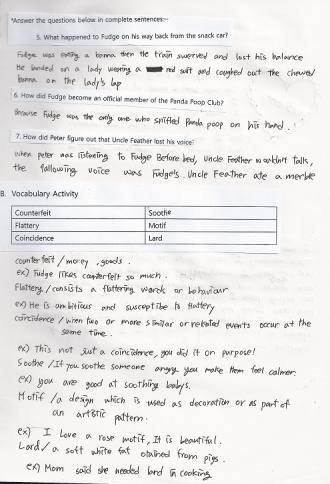 *Answer the questions below in complete sentences:~
5. What happened to Fudge on his way back from the snack car?
Fudge was eating a banna then the train swerved and lost his balance
He landed on a lady wearing a red suit and coughed out the chewed
banna on the lady's lap
6. How did Fudge become an official member of the Panda Poop Club?
Because Fudge was the only one who sniffed Panda poop on his hand.
7. How did Peter figure out that Uncle Feather lost his voice:
When peter was listening to Fudge Before bed, Uncle Feather wouldn't talk,
the following voice was Fudge's. Uncle Feather ate a merble
B. Vocabulary Activity
Counterfeit Soothe
Flattery Motif
Coincidence Lard
counterfeit / money , goods .
ex) Fudge likes counterfeit so much.
Flattery / consists a flattering words or behaviour
ex) He is ambitious and susceptible to flattery
coincidence / when two or more similar or related events occur at the
same time.
ex) This not just a coincidence, you did it on purpose!
Soothe / If you soothe someone angry you make them feel calmer.
ex) you are good at soothing babys.
Motif / a design which is used as decoration or as part of
an artstic pattern.
ex) I Love a rose motif, It is beautiful.
Lard / a soft white fat otained from pigs.
ex) Mom said she needed lard in cooking